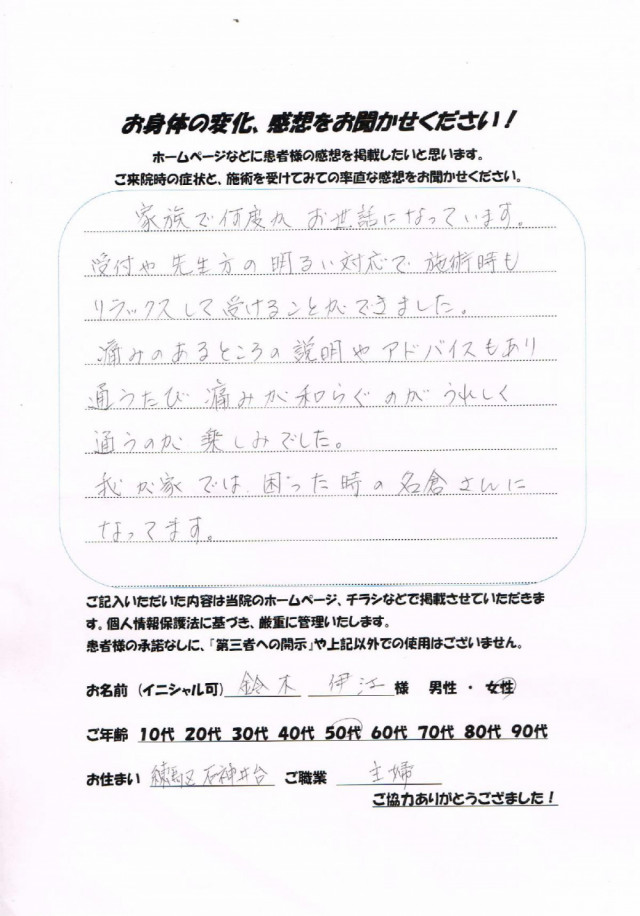 お身体の変化、感想をお聞かせください！
ホームページなどに患者様の感想を掲載したいと思います。
ご来院時の症状と、施術を受けてみての率直な感想をお聞かせください。
家族で何度か お世話になっています。
受付や先生方の明るい対応で施術時も
リラックスして受けることができました。
痛みのあるところの説明やアドバイスもあり
通うたび 痛みが和らぐのがうれしく
通うのが楽しみでした。
我が家では 困った時の名倉さんに
なってます。
ご記入いただいた内容は当院のホームページ、チラシなどで掲載させていただきま
す。個人情報保護法に基づき、厳重に管理いたします。
患者様の承諾なしに、「第三者への開示」や上記以外での使用はございません。
お名前（イニシャル可） 鈴木 伊江 様 男性 ・ 女性
ご年齢 10代 20代 30代 40代 50代 60代 70代 80代 90代
お住まい 練馬区石神井台 ご職業 主婦
ご協力ありがとうござました！